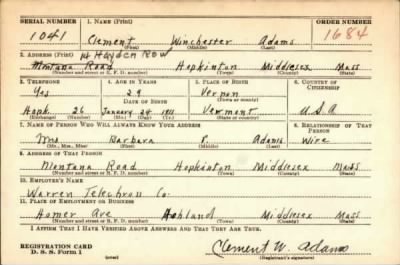 SERIAL NUMBER 1. NAME (Print) ORDER NUMBER
1041 Clement Winchester Adams 1684
(First) (Middle) (Last)
2. ADDRESS (Print) 14 HAYDEN ROW
Montana Road Hopkinton Middlesex Mass
(Number and street or R. F. D. number) (Town) (County) (State)
3. TELEPHONE 4. AGE IN YEARS 5. PLACE OF BIRTH 6. COUNTRY OF CITIZENSHIP
Yes 29 Vernon
DATE OF BIRTH (Town or county)
Hopk. 26 January 24 1911 Vermont U.S.A
(Exchange) (Number) (Mo.) (Day) (Yr.) (State or country)
7. NAME OF PERSON WHO WILL ALWAYS KNOW YOUR ADDRESS 8. RELATIONSHIP OF THAT PERSON
Mrs Barbara S. Adams Wife
(Mr., Mrs., Miss) (First) (Middle) (Last)
9. ADDRESS OF THAT PERSON
Montana Road Hopkinton Middlesex Mass
(Number and street or R. F. D. number) (Town) (County) (State)
10. EMPLOYER'S NAME
Warren Telechron Co.
11. PLACE OF EMPLOYMENT OR BUSINESS
Homer Ave Ashland Middlesex Mass
(Number and street or R. F. D. number) (Town) (County) (State)
I AFFIRM THAT I HAVE VERIFIED ABOVE ANSWERS AND THAT THEY ARE TRUE.
REGISTRATION CARD
D. S. S. Form 1 Clement W. Adams
(Registrant's signature)